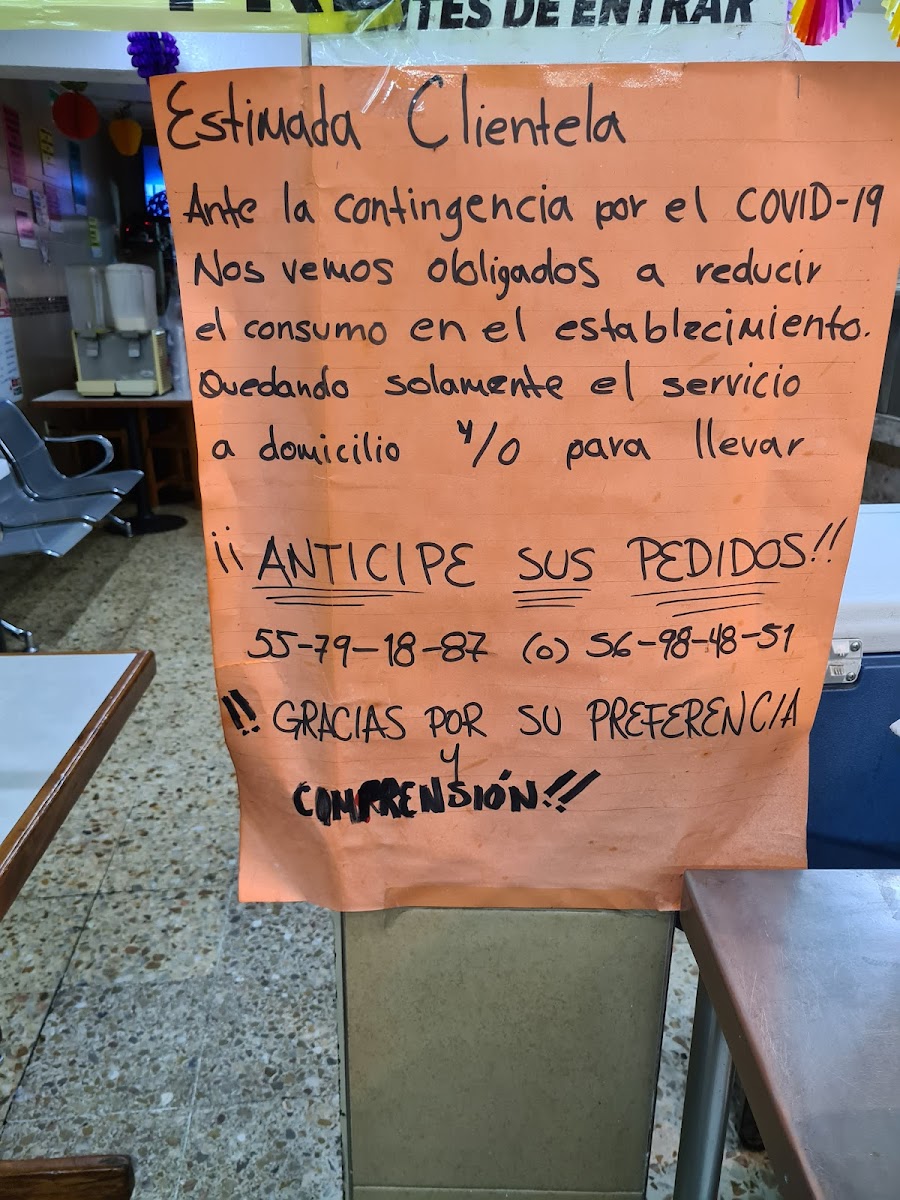 NTES DE ENTRAR
Estimada Clientela
Ante la contingencia por el COVID-19
Nos vemos obligados a reducir
el consumo en el establecimiento.
Quedando solamente el servicio
a domicilio y/o para llevar
¡¡ANTICIPE SUS PEDIDOS!!
55-79-18-87 (o) 56-98-48-51
!! GRACIAS POR SU PREFERENCIA
y
COMPRENSIÓN!!